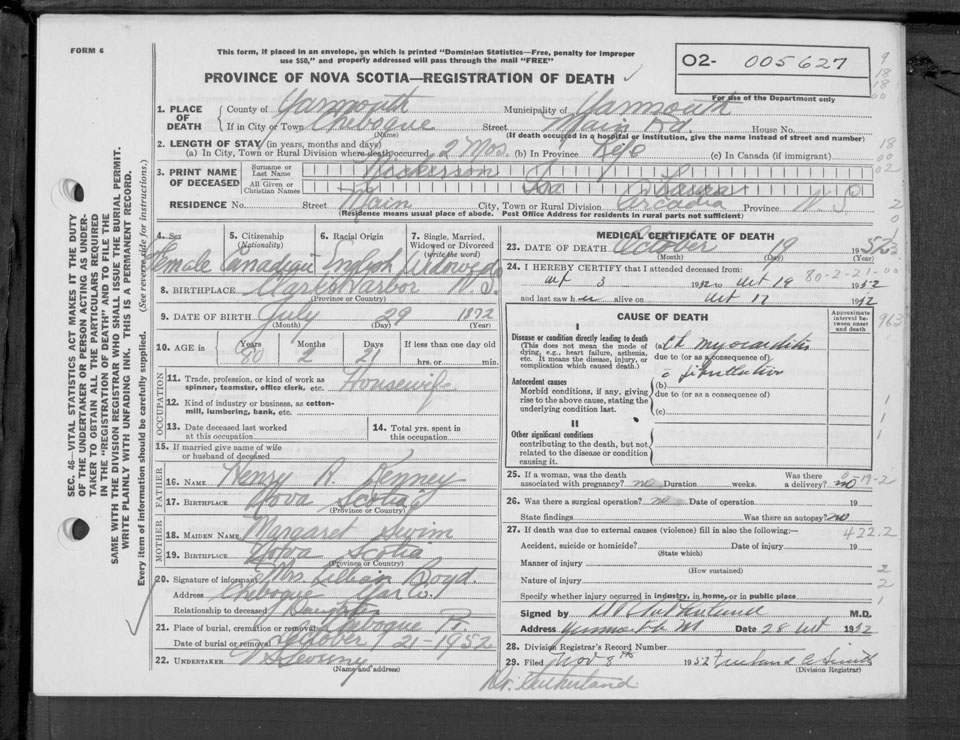 FORM 6
This form, if placed in an envelope, on which is printed "Dominion Statistics—Free, penalty for improper
use $50," and properly addressed will pass through the mail "FREE"
PROVINCE OF NOVA SCOTIA—REGISTRATION OF DEATH
O2- 005627
For use of the Department only
1. PLACE OF DEATH County of Yarmouth Municipality of Yarmouth
If in City or Town Chebogue Street Main Rd. House No.
(Name) (If death occurred in a hospital or institution, give the name instead of street and number)
2. LENGTH OF STAY (in years, months and days)
(a) In City, Town or Rural Division where death occurred 2 Mos. (b) In Province Life (c) In Canada (if immigrant)
3. PRINT NAME OF DECEASED Surname or Last Name Nickerson
All Given or Christian Names Ida Laura
RESIDENCE No. Street Main City, Town or Rural Division Arcadia Province N. S
(Residence means usual place of abode. Post Office Address for residents in rural parts not sufficient)
4. Sex 5. Citizenship (Nationality) 6. Racial Origin 7. Single, Married, Widowed or Divorced (write the word)
Female Canadian English Widowed
8. BIRTHPLACE Harbor N. S.
(Province or Country)
9. DATE OF BIRTH July 29 1872
(Month) (Day) (Year)
10. AGE in Years Months Days If less than one day old
80 2 21 hrs. or min.
OCCUPATION
11. Trade, profession, or kind of work as spinner, teamster, office clerk, etc. Housewife
12. Kind of industry or business, as cotton-mill, lumbering, bank, etc.
13. Date deceased last worked at this occupation
14. Total yrs. spent in this occupation
15. If married give name of wife or husband of deceased
FATHER
16. Name Henry A. Kenney
17. Birthplace Nova Scotia
(Province or Country)
MOTHER
18. Maiden Name Margaret
19. Birthplace Nova Scotia
(Province or Country)
20. Signature of informant Mrs. Lillian Boyd.
Address Chebogue Yar Co.
Relationship to deceased Daughter
21. Place of burial, cremation or removal Chebogue Pt.
Date of burial or removal October 21-1952
22. Undertaker
(Name and address)
MEDICAL CERTIFICATE OF DEATH
23. DATE OF DEATH October 19 1952
(Month) (Day) (Year)
24. I HEREBY CERTIFY that I attended deceased from:
3 1952 to Oct 19 1952
80-2-21-00
and last saw her alive on Oct 17 1952
CAUSE OF DEATH
Approximate interval between onset and death
I
Disease or condition directly leading to death
(This does not mean the mode of dying, e.g., heart failure, asthenia, etc. It means the disease, injury, or complication which caused death.)
(a) Ch myocarditis
due to (or as a consequence of)
c fibrillation
Antecedent causes
Morbid conditions, if any, giving rise to the above cause, stating the underlying condition last.
(b)
due to (or as a consequence of)
(c)
II
Other significant conditions
contributing to the death, but not related to the disease or condition causing it.
25. If a woman, was the death associated with pregnancy? no Duration weeks. Was there a delivery? no
26. Was there a surgical operation? no Date of operation 19
State findings Was there an autopsy? no
27. If death was due to external causes (violence) fill in also the following:—
422.2
Accident, suicide or homicide? Date of injury 19
(State which)
Manner of injury
(How sustained)
Nature of injury
Specify whether injury occurred in industry, in home, or in public place
Signed by M.D.
Address Yarmouth NS Date 28 Oct 1952
28. Division Registrar's Record Number
29. Filed Nov 8th 1952
(Division Registrar)
Dr. Sutherland
SEC. 46—VITAL STATISTICS ACT MAKES IT THE DUTY
OF THE UNDERTAKER OR PERSON ACTING AS UNDER-
TAKER TO OBTAIN ALL THE PARTICULARS REQUIRED
IN THE "REGISTRATION OF DEATH" AND TO FILE THE
SAME WITH THE DIVISION REGISTRAR WHO SHALL ISSUE THE BURIAL PERMIT.
WRITE PLAINLY WITH UNFADING INK. THIS IS A PERMANENT RECORD.
Every item of information should be carefully supplied. (See reverse side for instructions.)